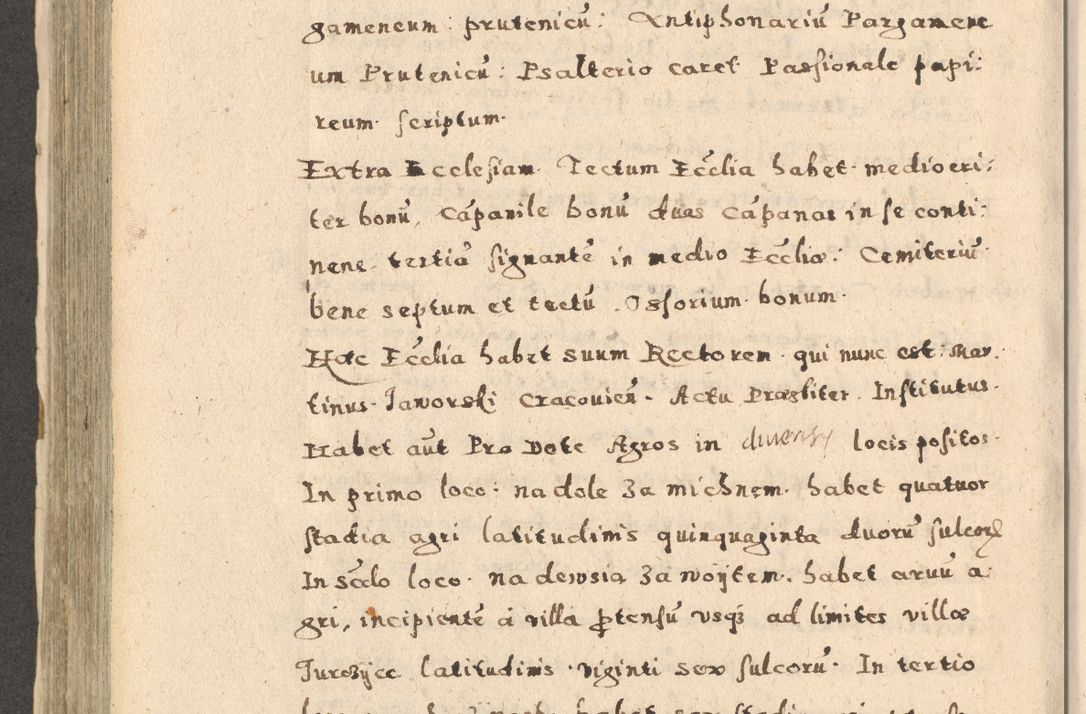 gameneum: prutenicũ: Antiphonariũ Pargamene
um Prutenicũ: Psalterio caret Passionale papi:
reum scriptum.
Extra Ecclesiam. Tectum Ecclia habet mediocri:
ter bonũ, Cãpanile bonũ duas Cãpanas in se conti:
nene tertiã signantẽ in medio Ecclia: Cemiteriũ
bene septum et tectũ. Ossorium bonum.
Hæc Ecclia habet suum Rectorem qui nunc est Mar.
tinus Jaworski Cracoviẽn. Actu Præsbiter Institutus.
Habet aũt Pro Dote Agros in diversis locis positos.
In primo loco: na dole Za michnem. habet quatuor
stadia agri latitudinis quinquaginta duorũ sulcorꝝ
In scdo loco. na dewsia Za woÿtem. habet arvũ a:
gri, incipientẽ à villa ꝓtensũ usqꝫ ad limites villæ
Jurczÿce latitudinis viginti sex sulcorũ. In tertio